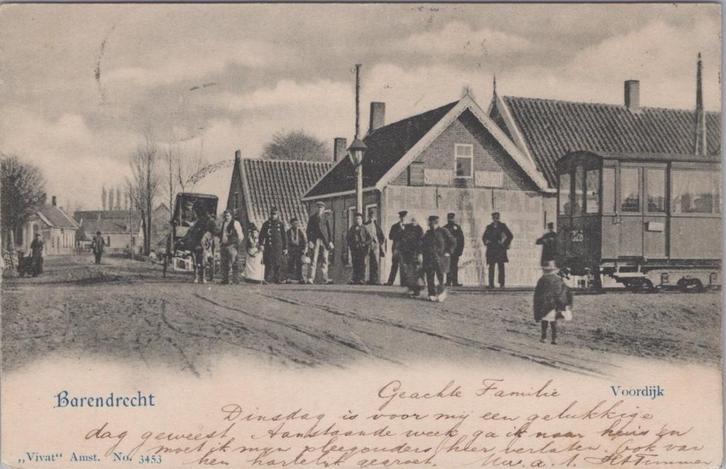 HEEL
328
Geachte Familie
Barendrecht
Voordijk
Dinsdag is voor mij een gelukkige
dag geweest. Aanstaande week ga ik naar huis en
moet ik mijn pleegouders hier verlaten, ook van
hen hartelijk gegroet.
„Vivat" Amst. No. 3453